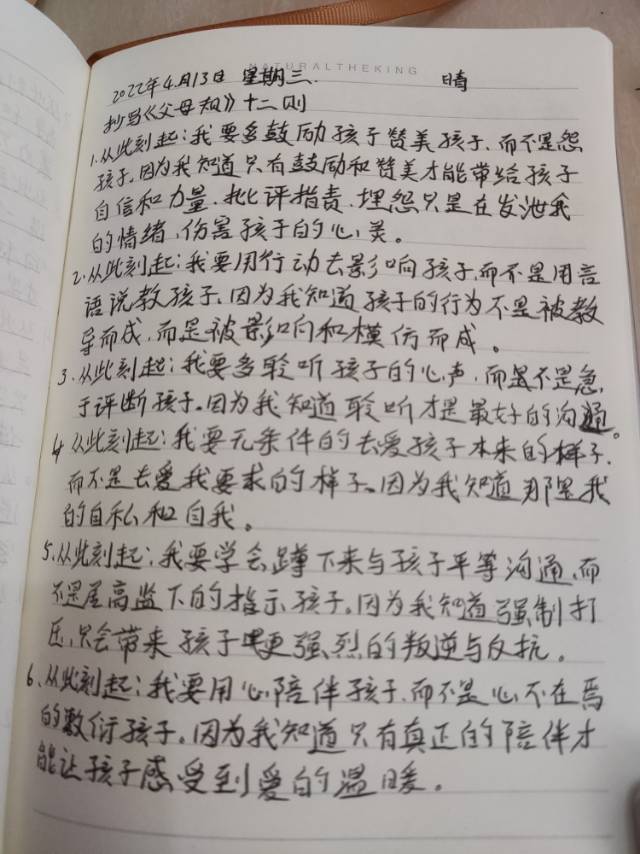 NATURALTHEKING
2022年4月13日 星期三. 晴
抄写《父母规》十二则
1.从此刻起:我要多鼓励孩子赞美孩子,而不是怨
孩子。因为我知道只有鼓励和赞美才能带给孩子
自信和力量.批评指责.埋怨只是在发泄我
的情绪,伤害孩子的心灵。
2.从此刻起:我要用行动去影响孩子,而不是用言
语说教孩子,因为我知道孩子的行为不是被教
导而成,而是被影响和模仿而成。
3.从此刻起:我要多聆听孩子的心声,而是不是急
于评断孩子。因为我知道聆听才是最好的沟通。
4 从此刻起:我要无条件的去爱孩子本来的样子.
而不是去爱我要求的样子。因为我知道那是我
的自私和自我。
5.从此刻起:我要学会蹲下来与孩子平等沟通,而
不是居高监下的指示孩子。因为我知道强制打
压,只会带来孩子更强烈的叛逆与反抗。
6、从此刻起:我要用心陪伴孩子,而不是心不在焉
的敷衍孩子。因为我知道只有真正的陪伴才
能让孩子感受到爱的温暖。